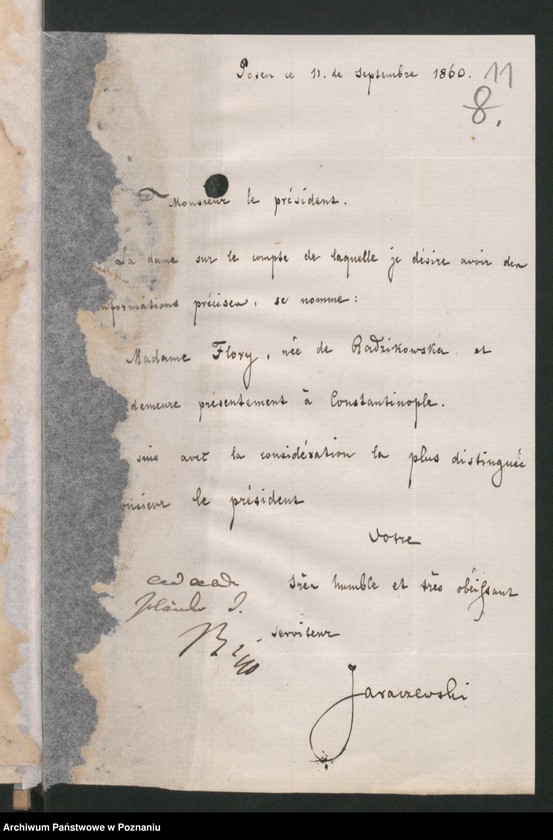 Posen ce 11. de septembre 1860.
11
8.
Monsieur le président.
La dame sur le compte de laquelle je désire avoir des
informations précises, se nomme:
Madame Flory, née de Radzikowska et
demeure présentement à Constantinople.
suis avec la considération la plus distinguée
onsieur le président
votre
très humble et très obéissant
serviteur
Jaraczewski
Archiwum Państwowe w Poznaniu